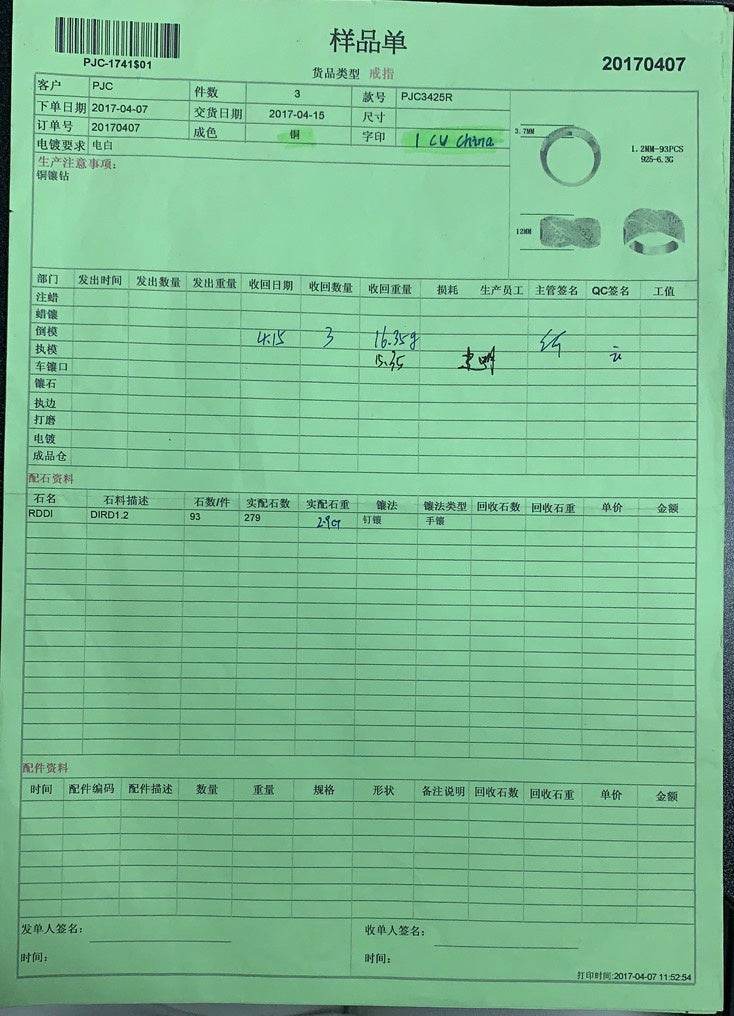 样品单
PJC-1741$01
20170407
货品类型 戒指
客户 PJC 件数 3 款号 PJC3425R
下单日期 2017-04-07 交货日期 2017-04-15 尺寸
订单号 20170407 成色 铜 字印 1 CU China
电镀要求 电白
3.7MM
1.2MM-93PCS
925-6.3G
12MM
生产注意事项:
铜镶钻
部门 发出时间 发出数量 发出重量 收回日期 收回数量 收回重量 损耗 生产员工 主管签名 QC签名 工值
注蜡
蜡镶
倒模 4.15 3 16.35g
执模 15.35
车镶口
镶石
执边
打磨
电镀
成品仓
配石资料
石名 石料描述 石数/件 实配石数 实配石重 镶法 镶法类型 回收石数 回收石重 单价 金额
RDDI DIRD1.2 93 279 钉镶 手镶
配件资料
时间 配件编码 配件描述 数量 重量 规格 形状 备注说明 回收石数 回收石重 单价 金额
发单人签名: 收单人签名:
时间: 时间:
打印时间:2017-04-07 11:52:54